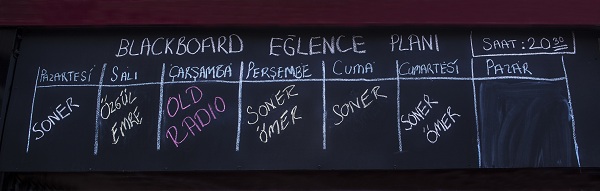 BLACKBOARD EĞLENCE PLANI
SAAT: 20.30
PAZARTESİ SALI ÇARŞAMBA PERŞEMBE CUMA CUMARTESİ PAZAR
SONER
ÖZGÜL
EMRE
OLD
RADIO
SONER
ÖMER
SONER
SONER
ÖMER